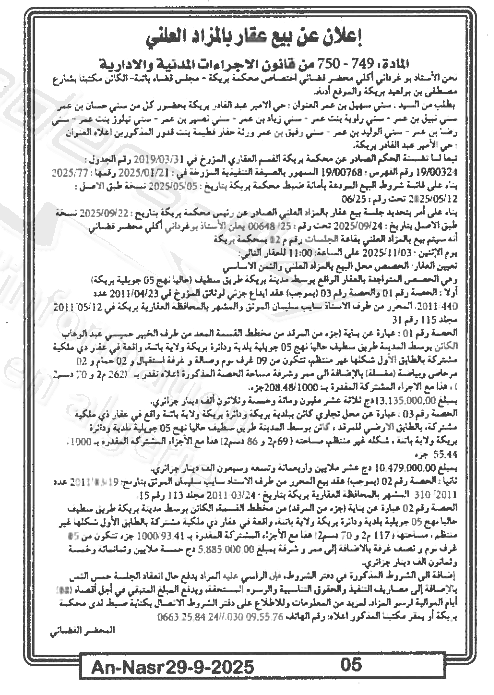 إعلان عن بيع عقار بالمزاد العلني
المادة: 749 - 750 من قانون الاجراءات المدنية والادارية
نحن الأستاذ بوغرداني أكلي محضر قضائي اختصاص محكمة بريكة - مجلس قضاء باتنة - الكائن مكتبنا بشارع
مصطفى بن بوليد بريكة والموقع أدناه.
بطلب من السيد . سني سهيل بن عمر العنوان : حي الأمير عبد القادر بريكة بحضور كل من سني حسان بن عمر
سني نبيل بن عمر - سني راوية بنت عمر - سني زياد بن عمر - سني نصير بن عمر - سني نيلوز بنت عمر - سني
رضا بن عمر - سني الوليد بن عمر - سني رفيق بن عمر ورثة حفار فطيمة بنت قدور المذكورين اعلاه العنوان
: حي الأمير عبد القادر بريكة.
تبعا لما تضمنه الحكم الصادر عن محكمة بريكة القسم العقاري المؤرخ في 2019/03/31 رقم الجدول :
19/00324 رقم الفهرس : 19/00768 الممهور بالصيغة التنفيذية المؤرخة في : 2025/01/21 تحت رقم : 2025/77
بناء على قائمة شروط البيع المودعة بأمانة ضبط محكمة بريكة بتاريخ : 2025/05/05 نسخة طبق الاصل :
2025/05/12 تحت رقم 06/25
بناء على أمر بتحديد جلسة بيع عقار بالمزاد العلني الصادر عن رئيس محكمة بريكة بتاريخ : 2025/09/22 نسخة
طبق الاصل بتاريخ : 2025/09/24 تحت رقم : 00648/25 يعلن الأستاذ بوغرداني أكلي محضر قضائي
أنه سيتم بيع بالمزاد العلني بقاعة الجلسات رقم 02 بمحكمة بريكة
يوم الإثنين 2025/11/03 على الساعة: 11:00 للعقار التالي:
تعيين العقار- الحصص محل البيع بالمزاد العلني والثمن الاساسي
وهي الحصص المتواجدة بالعقار الواقع بوسط مدينة بريكة طريق سطيف (حاليا نهج 05 جويلية بريكة)
أولا : الحصة رقم 01 والحصة رقم 03 (بموجب) عقد إيداع جزئي لوثائق المؤرخ في 2011/04/23 عدد
2011/440 المحرر من طرف الأستاذ سايب سليمان الموثق والمشهر بالمحافظة العقارية بريكة في 2011/05/12
مجلد 115 رقم 31
الحصة رقم 01 : عبارة عن بناية (جزء من المرقد) من مخطط القسمة المعد من طرف الخبير حميسي عبد الوهاب
الكائن بوسط المدينة طريق سطيف حاليا نهج 05 جويلية بلدية ودائرة بريكة ولاية باتنة، واقعة في عقار ذي ملكية
مشتركة بالطابق الأول شكلها غير منتظم، تتكون من 09 غرف نوم وصالة و غرفة استقبال و 02 حمام و 02
مرحاض وبياضة (مغسلة) بالإضافة الى ممر وشرفة مساحة الحصة المذكورة اعلاه تقدر بـ (262م2 و 70 دسم2
) ، هذا مع الاجزاء المشتركة المقدرة بـ 208.48/1000جزء.
بمبلغ 13.135.000,00 دج ثلاثة عشر مليون ومائة وخمسة وثلاثون ألف دينار جزائري.
الحصة رقم 03 : عبارة عن محل تجاري كائن ببلدية بريكة ودائرة بريكة ولاية باتنة واقع في عقار ذي ملكية
مشتركة، بالطابق الارضي للمرقد ، كائن بوسط المدينة طريق سطيف حاليا نهج 05 جويلية بلدية ودائرة
بريكة ولاية باتنة ، شكله غير منتظم، مساحته (69م2 و 86 دسم2) هذا مع الأجزاء المشتركة المقدرة بـ 1000.
55.44 جزء
بمبلغ 10.479.000,00 دج عشر ملايين واربعمائة وتسعة وسبعون الف دينار جزائري.
ثانيا : الحصة رقم 02 (بموجب) عقد بيع المحرر من طرف الاستاذ سايب سليمان الموثق بتاريخ: 2011/03/19 عدد
2011/310 المشهر بالمحافظة العقارية بريكة بتاريخ : 2011/03/24 مجلد 113 رقم 15.
الحصة رقم 02 عبارة عن بناية (جزء من المرقد) من مخطط القسمة، الكائن بوسط مدينة بريكة طريق سطيف
حاليا نهج 05 جويلية بلدية ودائرة بريكة ولاية باتنة، واقعة في عقار ذي ملكية مشتركة بالطابق الأول شكلها غير
منتظم ، مساحتها ، (117 م2 و 70 دسم2) هذا مع الأجزاء المشتركة المقدرة بـ 1000/93.41 جزء تتكون من 05
غرف نوم و نصف غرفة بالاضافة إلى ممر و شرفة بمبلغ 5.885.000,00 دج خمسة ملايين وثمانمائة وخمسة
وثمانون الف دينار جزائري.
إضافة الى الشروط المذكورة في دفتر الشروط، فإن الراسي عليه المزاد يدفع حال انعقاد الجلسة خمس الثمن
بالاضافة إلى مصاريف التنفيذ والحقوق التناسبية والرسوم المستحقة، ويدفع المبلغ المتبقي في أجل أقصاه (08)
أيام الموالية لرسو المزاد. لمزيد من المعلومات وللاطلاع على دفتر الشروط الاتصال بكتابة ضبط لدى محكمة
بريكة أو بمقر مكتبنا المذكور اعلاه: رقم الهاتف: 030.09.55.76// 0663.25.84.24
المحضر القضائي
An-Nasr29-9-2025
05